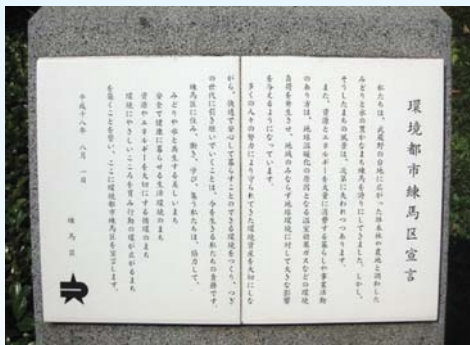 環境都市練馬区宣言
私たちは、武蔵野の台地に広がった雑木林や農地と調和した
みどりと水の豊かなまち練馬を誇りにしてきました。しかし、
そうしたまちの風景は、次第に失われつつあります。
また、資源とエネルギーを大量に消費する暮らしや事業活動
のあり方は、地球温暖化の原因となる温室効果ガスなどの環境
負荷を発生させ、地域のみならず地球環境に対して大きな影響
を与えるようになっています。
多くの人々の努力により守られてきた環境資産を大切にしな
がら、快適で安心して暮らすことのできる環境をつくり、つぎ
の世代に引き継いでいくことは、今を生きる私たちの責務です。
練馬区に住み、働き、学び、集う私たちは、協同して、
みどりや水と共生する美しいまち
安全で健康に暮らせる生活環境のまち
資源やエネルギーを大切にする循環のまち
環境にやさしいこころを育み行動の環が広がるまち
を築くことを誓い、ここに環境都市練馬区を宣言します。
平成十八年 八月 一日
練馬区